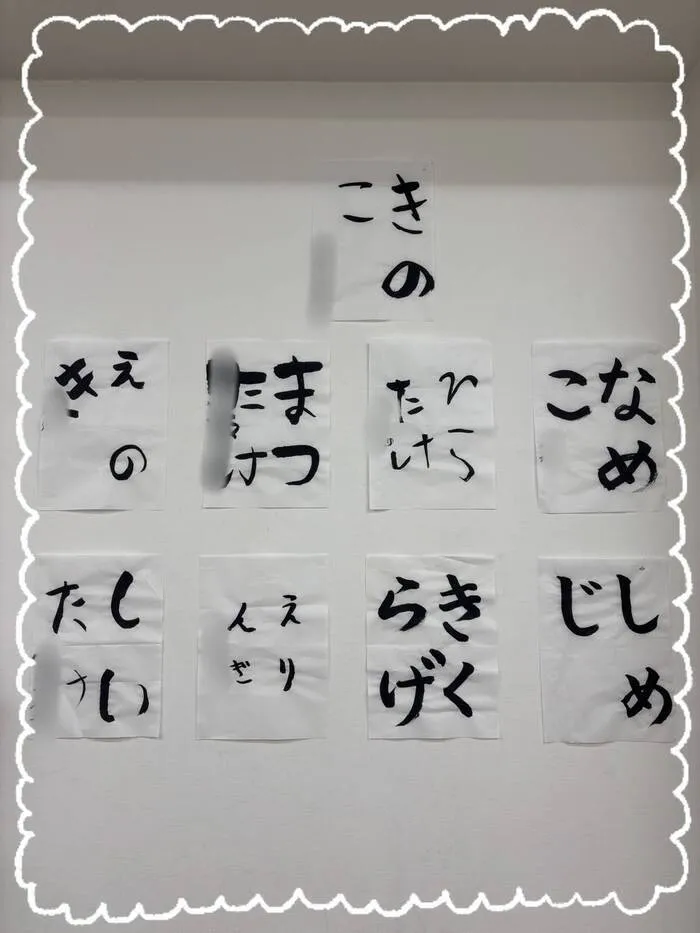 きの
こ
なめ
こ
ひら
たけ
まつ
たけ
えの
き
しめ
じ
きく
らげ
えり
んぎ
しい
たけ